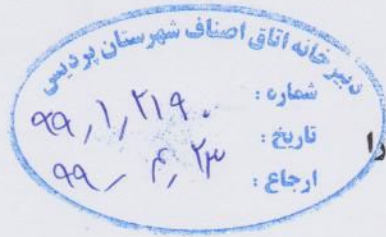 دبیرخانه اتاق اصناف شهرستان پردیس
شماره : ۹۹٫۱٫۲۱۹۰
تاریخ : ۹۹٫۴٫۲۳
ارجاع :
را